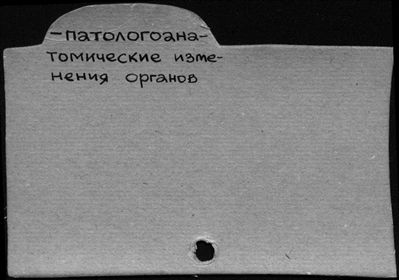 -патологоана-
томические изме-
нения органов